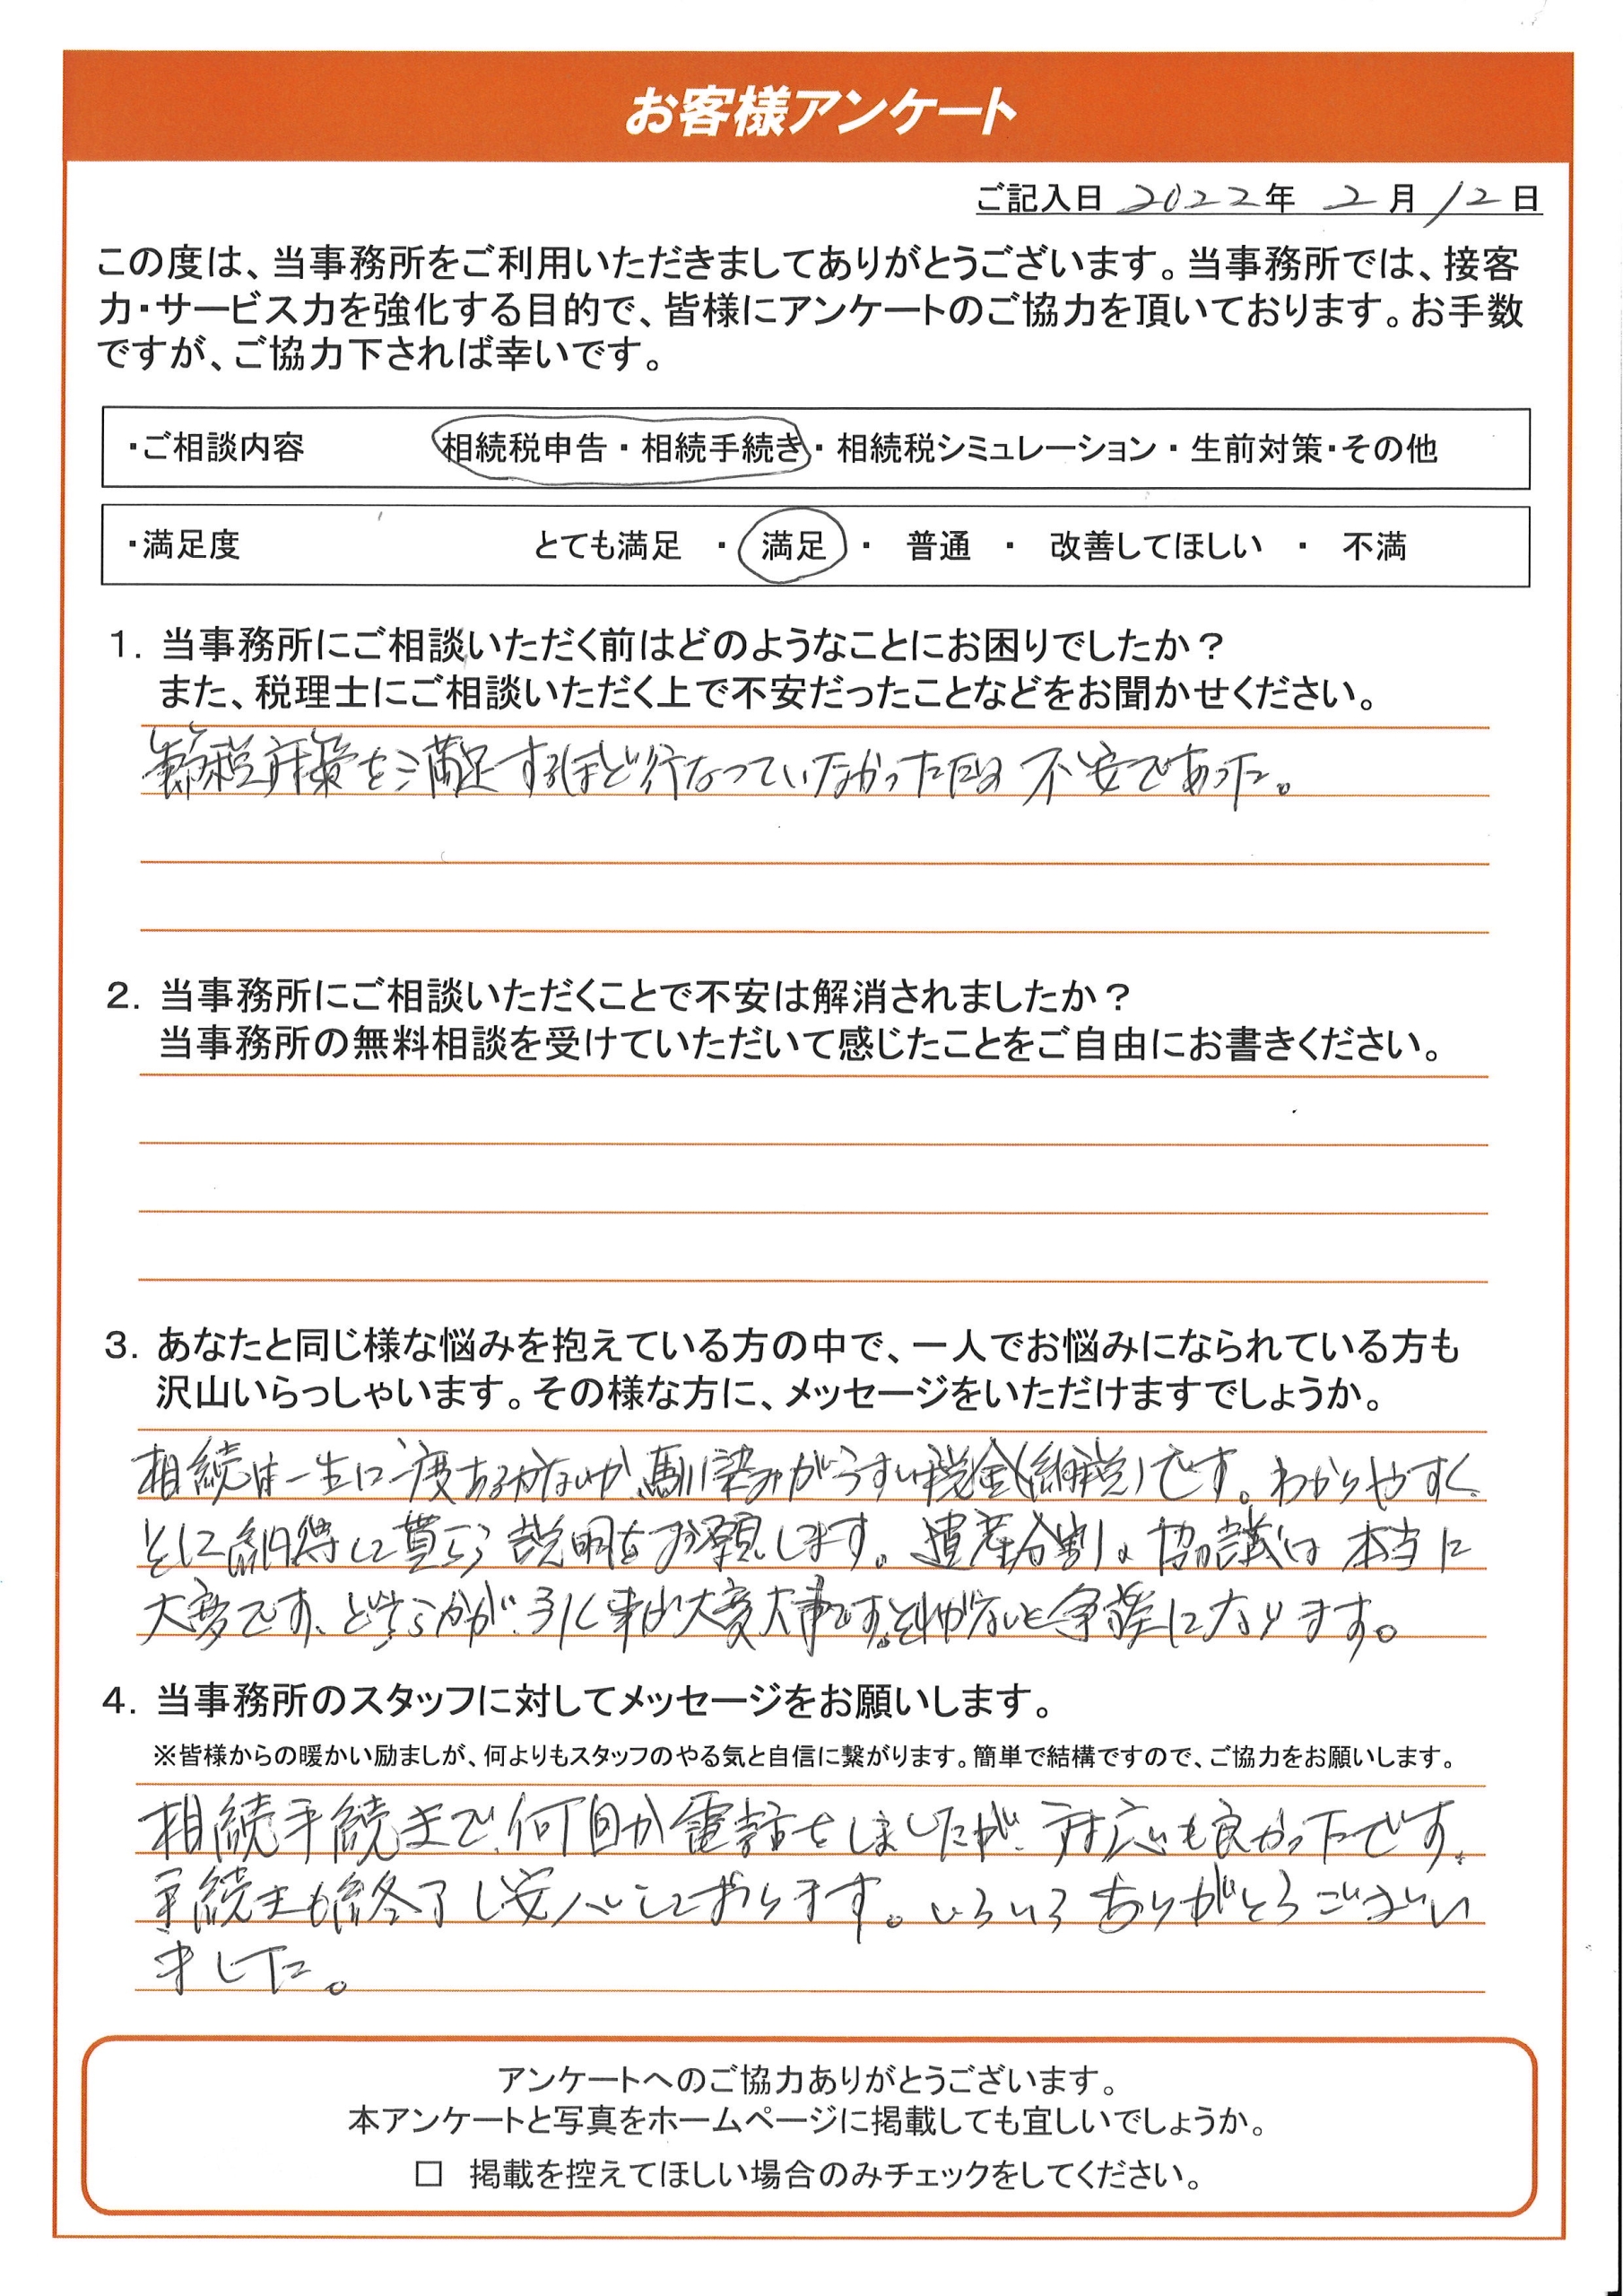 お客様アンケート
ご記入日 2022年 2月12日
この度は、当事務所をご利用いただきましてありがとうございます。当事務所では、接客
力・サービス力を強化する目的で、皆様にアンケートのご協力を頂いております。お手数
ですが、ご協力下されば幸いです。
・ご相談内容 相続税申告・相続手続き・相続税シミュレーション・生前対策・その他
・満足度 とても満足 ・ 満足 ・ 普通 ・ 改善してほしい ・ 不満
1. 当事務所にご相談いただく前はどのようなことにお困りでしたか？
また、税理士にご相談いただく上で不安だったことなどをお聞かせください。
節税対策を満足するほど行なっていなかった 不安であった。
2. 当事務所にご相談いただくことで不安は解消されましたか？
当事務所の無料相談を受けていただいて感じたことをご自由にお書きください。
3. あなたと同じ様な悩みを抱えている方の中で、一人でお悩みになられている方も
沢山いらっしゃいます。その様な方に、メッセージをいただけますでしょうか。
相続は一生に一度あるかないか、馴染みがうすい税金(納税)です。わかりやすく
納得して貰う説明をお願いします。遺産分割の協議は本当に
大変です、どちらかが引く事が大変大事です。それがないと争族になります。
4. 当事務所のスタッフに対してメッセージをお願いします。
※皆様からの暖かい励ましが、何よりもスタッフのやる気と自信に繋がります。簡単で結構ですので、ご協力をお願いします。
相続手続まで、何回か電話をしましたが、対応も良かったです。
手続きも終了し安心しております。いろいろありがとうござい
ました。
アンケートへのご協力ありがとうございます。
本アンケートと写真をホームページに掲載しても宜しいでしょうか。
□ 掲載を控えてほしい場合のみチェックをしてください。